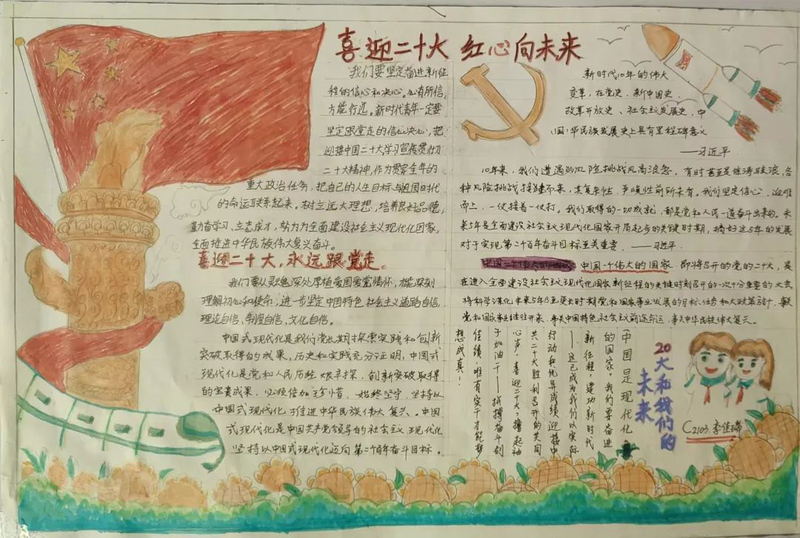 喜迎二十大 红心向未来
我们要坚定奋进新征
程的信心和决心,心有所信,
方能行远。新时代青年一定要
坚定跟党走的信心决心,把
迎接中国二十大学习宣传贯彻
二十大精神,作为贯穿全年的
重大政治任务,把自己的人生目标与祖国时代
的命运联系起来。树立远大理想,培养良好品德,
勤奋学习、立志成才,努力为全面建设社会主义现代化国家,
全面推进中华民族伟大复兴奋斗。
喜迎二十大,永远跟党走。
理解初心和使命,进一步坚定中国特色社会主义道路自信
理论自信,制度自信,文化自信。
中国式现代化是我们党长期探索实践和创新
突破取得的成果,历史和实践充分证明,中国式
现代化是党和人民历经艰辛探索,创新突破取得
的宝贵成果,必须倍加珍惜,始终坚守,坚持以
中国式现代化推进中华民族伟大复兴。中国
式现代化是中国共产党领导的社会主义现代化
坚持以中国式现代化迈向第二个百年奋斗目标。
新时代10年的伟大
变革,在党史、新中国史、
改革开放史、社会主义发展史、中
国中华民族发展史上具有里程碑意义
——习近平
10年来,我们遭遇的风险挑战风高浪急,有时甚至是惊涛骇浪,各
种风险挑战接踵而来,其复杂性、严峻性前所未有。我们坚定信心、迎难
而上,一仗接着一仗打。我们取得的一切成就,都是党和人民一道奋斗出来的。未
来5年是全面建设社会主义现代化国家开局起步的关键时期,搞好这5年的发展
对于实现第二个百年奋斗目标至关重要。——习近平.
中国一个伟大的国家 即将召开的党的二十大,是
在进入全面建设社会主义现代化国家新征程的关键时刻召开的一次十分重要的大会
将科学谋划未来5年乃至更长时期党和国家事业发展的目标任务和大政方针,事关
党和国家事业继往开来,事关中国特色社会主义前途命运,事关中华民族伟大复兴。
中国是现代化
的国家,我们要奋进
新征程,建功新时代
——这已成为我们以实际
行动和优异成绩迎接中
共二十大胜利召开的共同
心声!喜迎二十大,撸起袖
子加油干——拼搏奋斗创
佳绩,唯有实干才能梦
想成真!
20大和我们的
未来